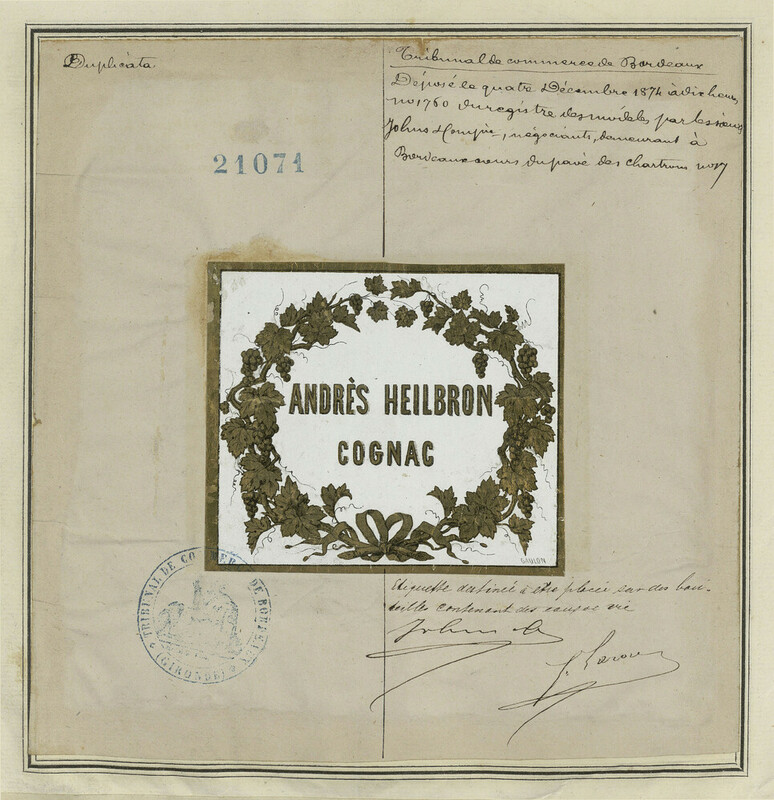 Duplicata
Tribunal de commerce de Bordeaux
Déposé le quatre Décembre 1874 à dix heures
no 1760 du registre des modèles par les sieurs
Johns & Compie, négociants, demeurant à
Bordeaux cours du pavé des chartrons no 17
21071
ANDRÈS HEILBRON
COGNAC
GAULON
Etiquette destinée à être placée sur des bou-
teilles contenant des eaux de vie
TRIBUNAL DE COMMERCE DE BORDEAUX
(GIRONDE)
Johns